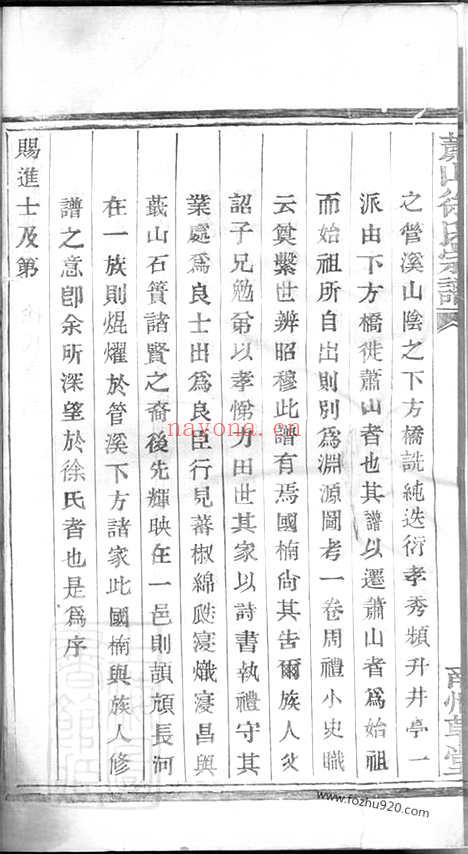 蕭山徐氏宗譜
之管溪山陰之下方橋詵純迭衍孝秀頻升井亭一
派由下方橋徙蕭山者也其譜以遷蕭山者爲始祖
而始祖所自出則別爲淵源圖考一卷周禮小史職
云奠繫世辨昭穆此譜有焉國楠尙其告爾族人父
詔子兄勉弟以孝悌力田世其家以詩書執禮守其
業處爲良士出爲良臣行見蕃椒綿瓞寖熾寖昌與
蕺山石簣諸賢之裔後先輝映在一邑則頡頏長河
在一族則焜燿於管溪下方諸家此國楠與族人修
譜之意卽余所深望於徐氏者也是爲序
賜進士及第
南州草堂
nayona.cn
www.fozhu920.com